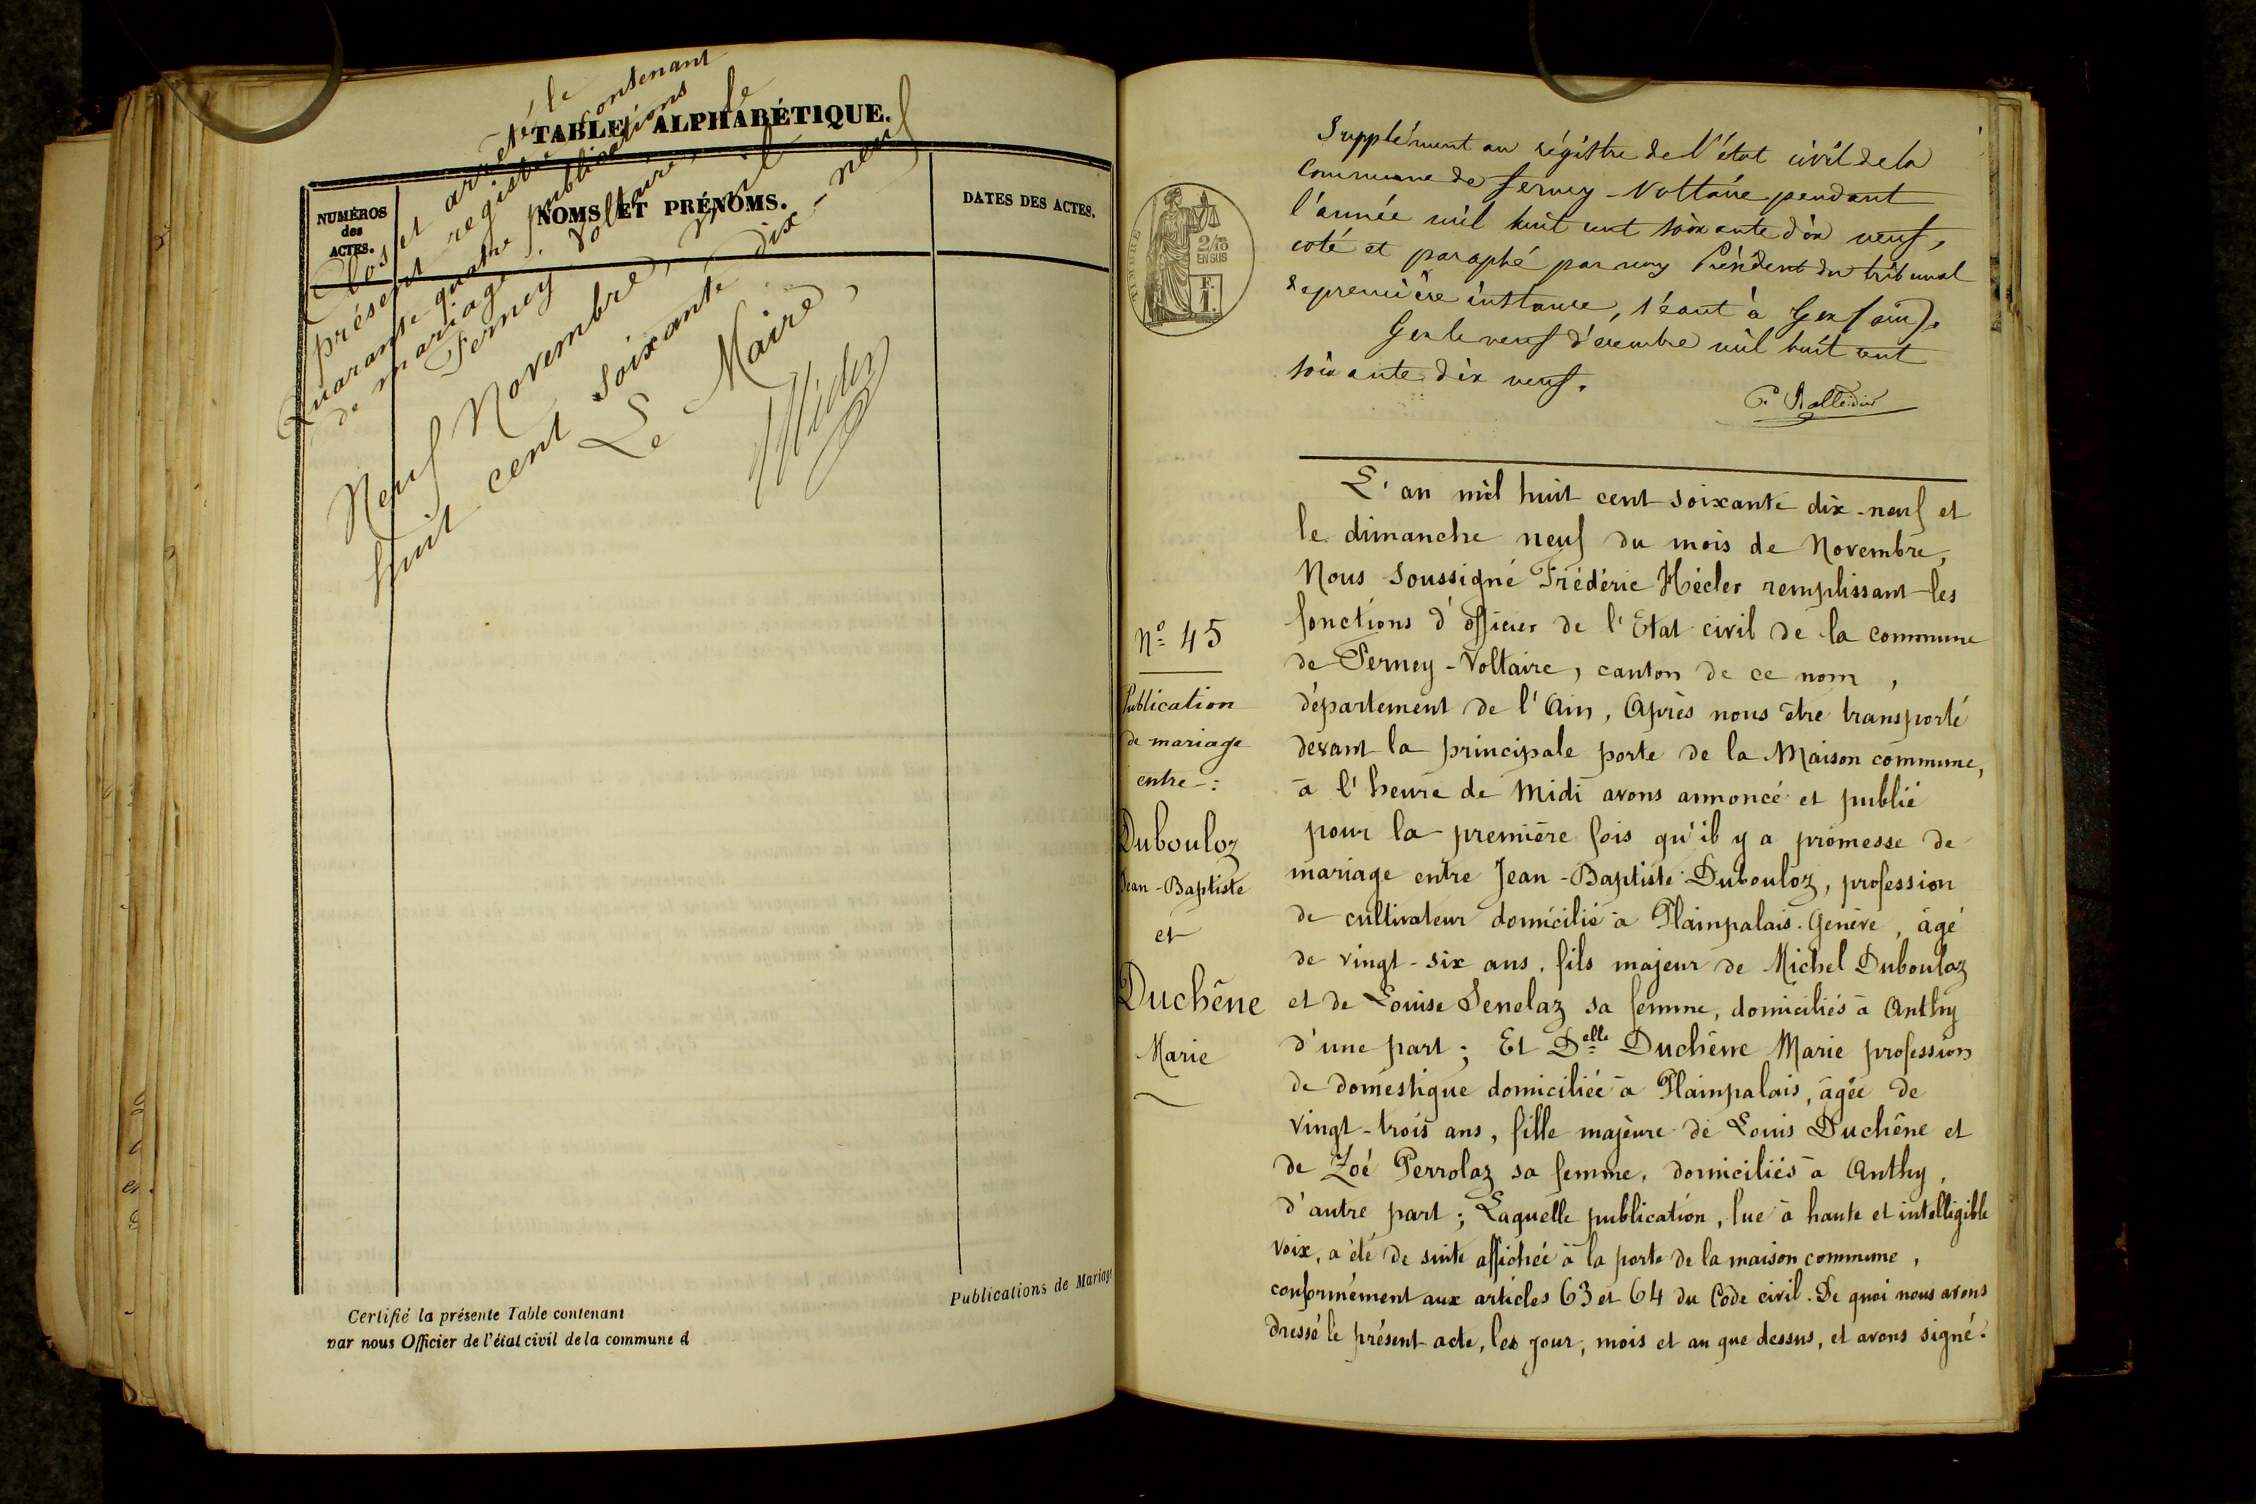 TABLE ALPHABÉTIQUE.
NUMÉROS
des
ACTES.
NOMS ET PRÉNOMS.
DATES DES ACTES.
Clos et arrêté le
présent registre contenant
Quarante quatre publications
de mariage.
Ferney Voltaire, le
Neuf Novembre, mil
huit cent soixante dix-neuf
Le Maire,
Certifié la présente Table contenant
par nous Officier de l'état civil de la commune d
Publications de Mariage
TIMBRE
2/10
EN SUS
F.
1.
Supplément au régistre de l'état civil de la
Commune de Ferney-Voltaire pendant
l'année mil huit cent soixante dix neuf,
coté et paraphé par nous Président du tribunal
de première instance, séant à Gex (ain).
Gex le neuf décembre mil huit cent
soixante dix neuf.
L'an mil huit cent soixante dix-neuf et
le dimanche neuf du mois de Novembre,
Nous soussigné Frédéric Hécler remplissant les
fonctions d'officier de l'Etat civil de la commune
de Ferney-Voltaire, canton de ce nom,
département de l'Ain, Après nous être transporté
devant la principale porte de la Maison commune,
à l'heure de Midi avons annoncé et publié
pour la première fois qu'il y a promesse de
mariage entre Jean-Baptiste Dubouloz, profession
de cultivateur domicilié à Plainpalais-Genève, âgé
de vingt-six ans, fils majeur de Michel Dubouloz
et de Louise Genelaz sa femme, domiciliés à Anthy
d'une part; Et Delle Duchêne Marie profession
de domestique domiciliée à Plainpalais, âgée de
vingt-trois ans, fille majeure de Louis Duchêne et
de Zoé Perrolaz sa femme, domiciliés à Anthy,
d'autre part; Laquelle publication, lue à haute et intelligible
voix, a été de suite affichée à la porte de la maison commune,
conformément aux articles 63 et 64 du Code civil. De quoi nous avons
dressé le présent acte, les jour, mois et an que dessus, et avons signé.
No 45
Publication
de mariage
entre:
Dubouloz
Jean-Baptiste
et
Duchêne
Marie